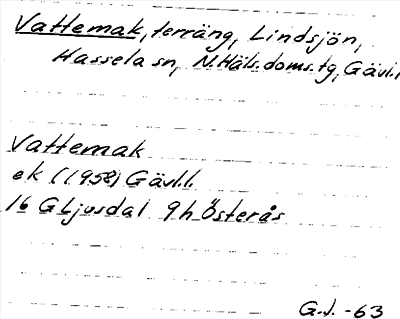 Vattemak, terräng, Lindsjön,
Hassela sn, N.Häls.doms.tg, Gävl.l
Vattemak
ek (1958) Gävl.l.
16 G Ljusdal 9 h Österås
G.J. -63